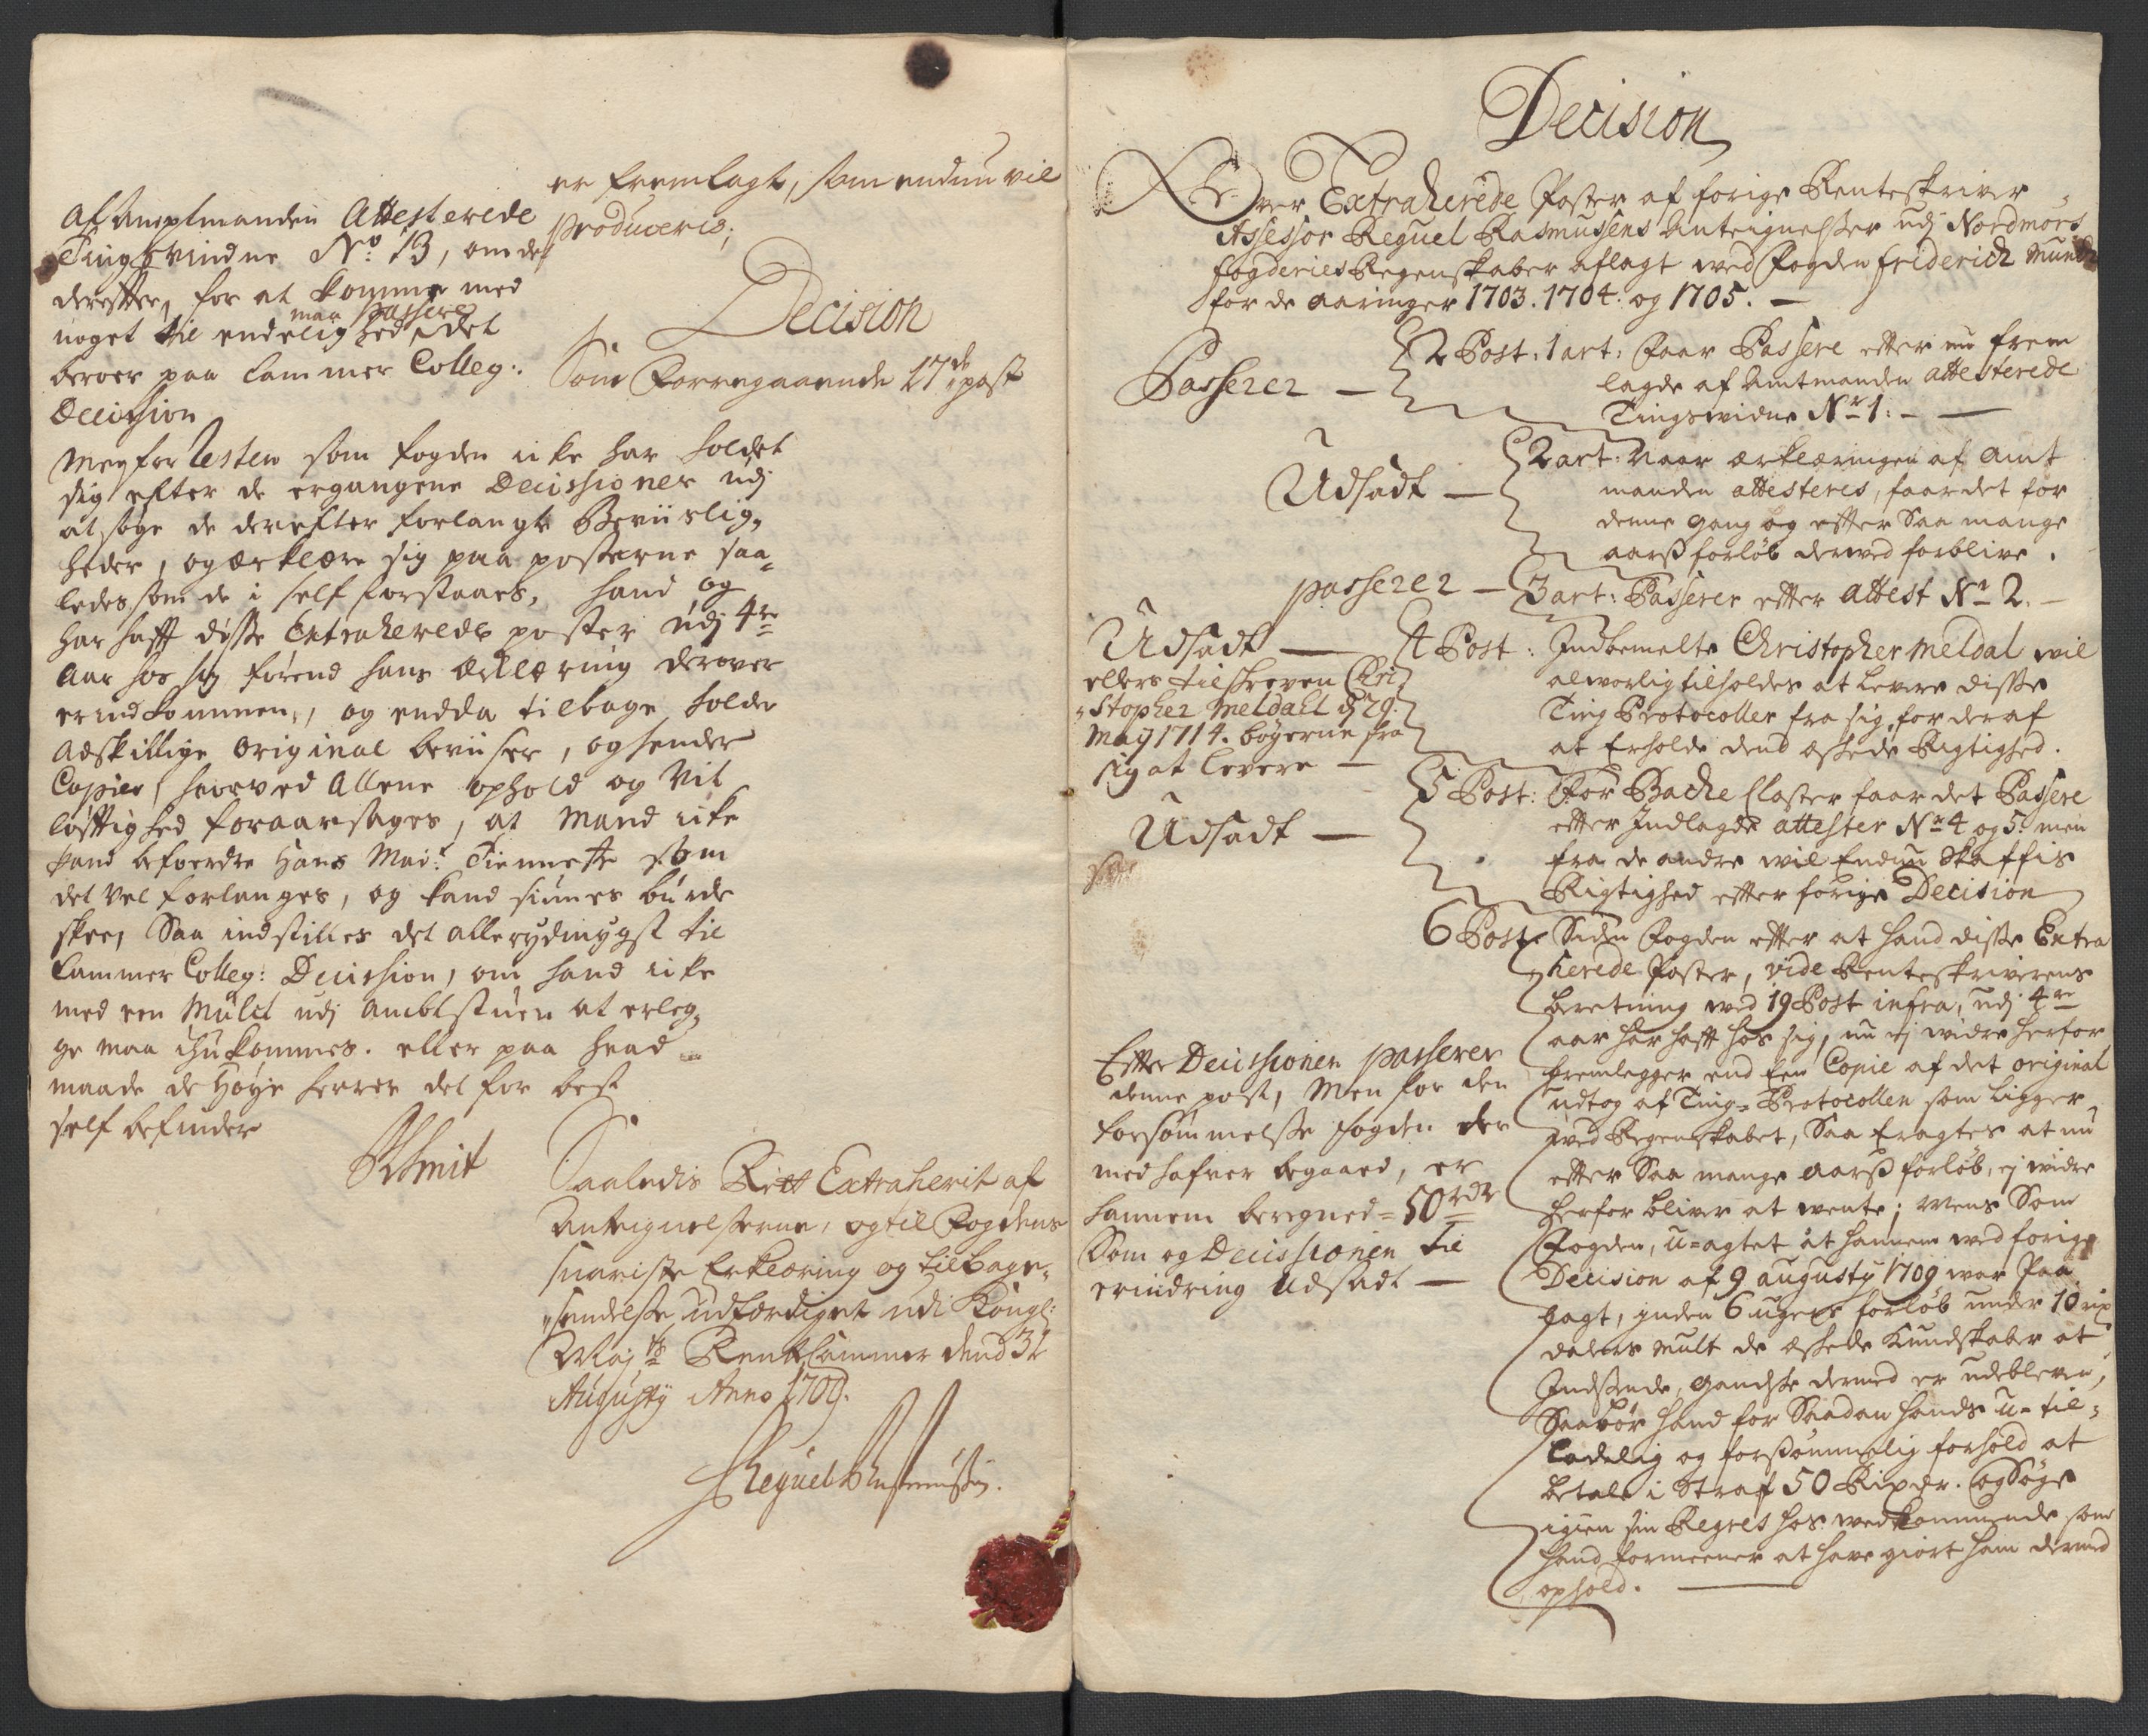 Af Amptmanden Attesterede
Tingsvindne No: 13, om de
derefter, for at komme med
noget til endelighed, maa passere det
beroer paa Cammer Colleg:
Decission
Megfærtesten som fogden icke har holdet
sig efter de ergangene Decissioner udj
at søge de derefter forlangte Beviislig,
heder, og ærklære sig paa posterne saa,
ledes som de i self forstaaes, hand og
har hafft disse Extraherede poster udj 4re
Aar hos sig førend hans Ærklæring derover
er indkommen, og endda tilbage holder
Adskillige original beviiser, og sender
Copier, hvorved Allene ophold og Vit
løfftighed foraarsages, at Mand icke
kand befordre Hans Mai:ts Tienneste som
det vel forlanges, og kand siunes burde
skee, Saa indstilles det allerydmygst til
Cammer Colleg: Decission, om hand icke
med een Mulct udj Ambtstuen at erleg,
ge maa ihukommes. eller paa hvad
maade de Høye herrer det for best
self befinder
Smit
er fremlagt, som endnu vil
produceris;
Decision
Som Foregaaende 17de post
Saaledis Rett Extraherit af
Antegnelserne, og til Fogdens
skriftl Erklæring og tilbage,
sendelse udferdiget udi Kongl:
Maj:ts Rente Cammer dend 31
Augusty Anno 1709.
Reguel Rasmussen.
Decision
Over Extraherede Poster af forige Renteskriver
Assessor Reguel Rasmussens Antegnelser udj Nordmørs
fogderies Regenskaber aflagt ved Fogden friderich Munch
for de aaringer 1703. 1704. og 1705. —
Passerer — 2 Post. 1 art: Faar Passere efter nu frem
lagde af Amtmanden attesterede
Tingsvidne Nr 1. —
Udsadt — 2 art: Naar ærklæringen af Amt
manden attesteres, faar det for
denne gang og efter saa mange
aarß forløb derved forblive.
passerer — 3 art: Passerer efter Attest Nr 2. —
Udsadt — 4 Post: Indbemelte Christopher Meldal vil
ellers tilskreven Chri
stopher Meldahl d 29.
May 1714. bøgerne fra
sig at levere —
alvorlig tilholdes at levere disse
Ting Protocoller fra sig, for deraf
at Erholde dend æskede Rigtighed.
Udsadt — 5 Post: For Backe Closter faar det Passere
efter Indlagde attester Nr 4 og 5. men
fra de andre vil Endnu skaffis
Rigtighed efter forige Decision
6 Post: Siden Fogden efter at hand disse Extra
herede Poster, vide Renteskriverens
beretning ved 19 Post infra, udj 4re
aar har hafft hos sig, nu ej videre herfor
fremlegger end Een Copie af det original
udtog af Ting-Protocollen som ligger
ved Regenskabet, Saa Eragtes at nu
efter Saa mange aarß forløb, ej videre
herfor bliver at vente; Mens Som
Fogden, u-agtet at hannem ved forige
Decision af 9 augusty 1709 var Paa
lagt, inden 6 ugers forløb under 10 rix
dalers Mult de æskede Kundskaber at
Indsende, gandske dermed er udebleven,
Saa bør hand for Saadan hands u-til-
ladelig og forsømmelig forhold at
betale i straf 50 Rixdr. og Søge
igien sin Regres hos vedkommende som
hand formeener at have giort ham dermed
ophold. —
Efter Decissionen passerer
denne post, Men for den
forsømmelse fogden der
med hafver begaaed, er
hannem beregned = 50 rdr
Som og Decissionen til
erindring Udsadt —